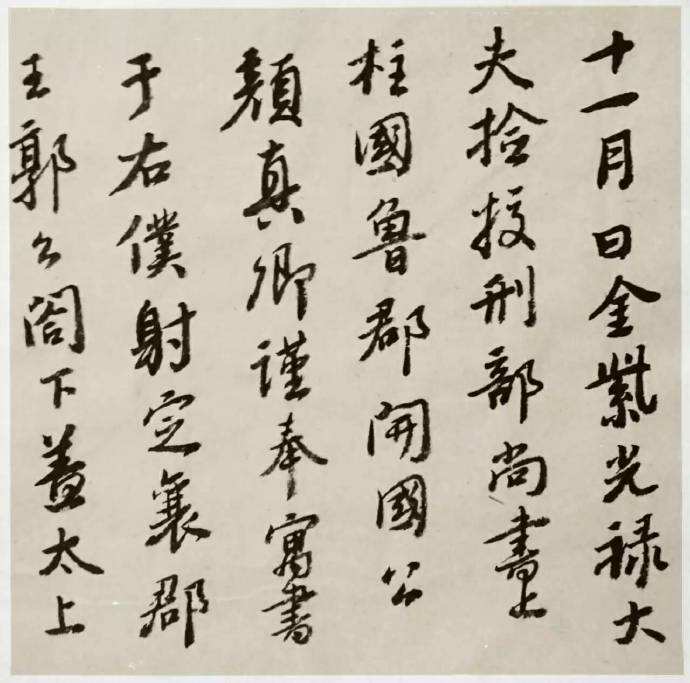 十一月日金紫光禄大
夫捡挍刑部尚書上
柱國魯郡開國公
顔真卿謹奉寓書
于右僕射定襄郡
王郭公閤下蓋太上